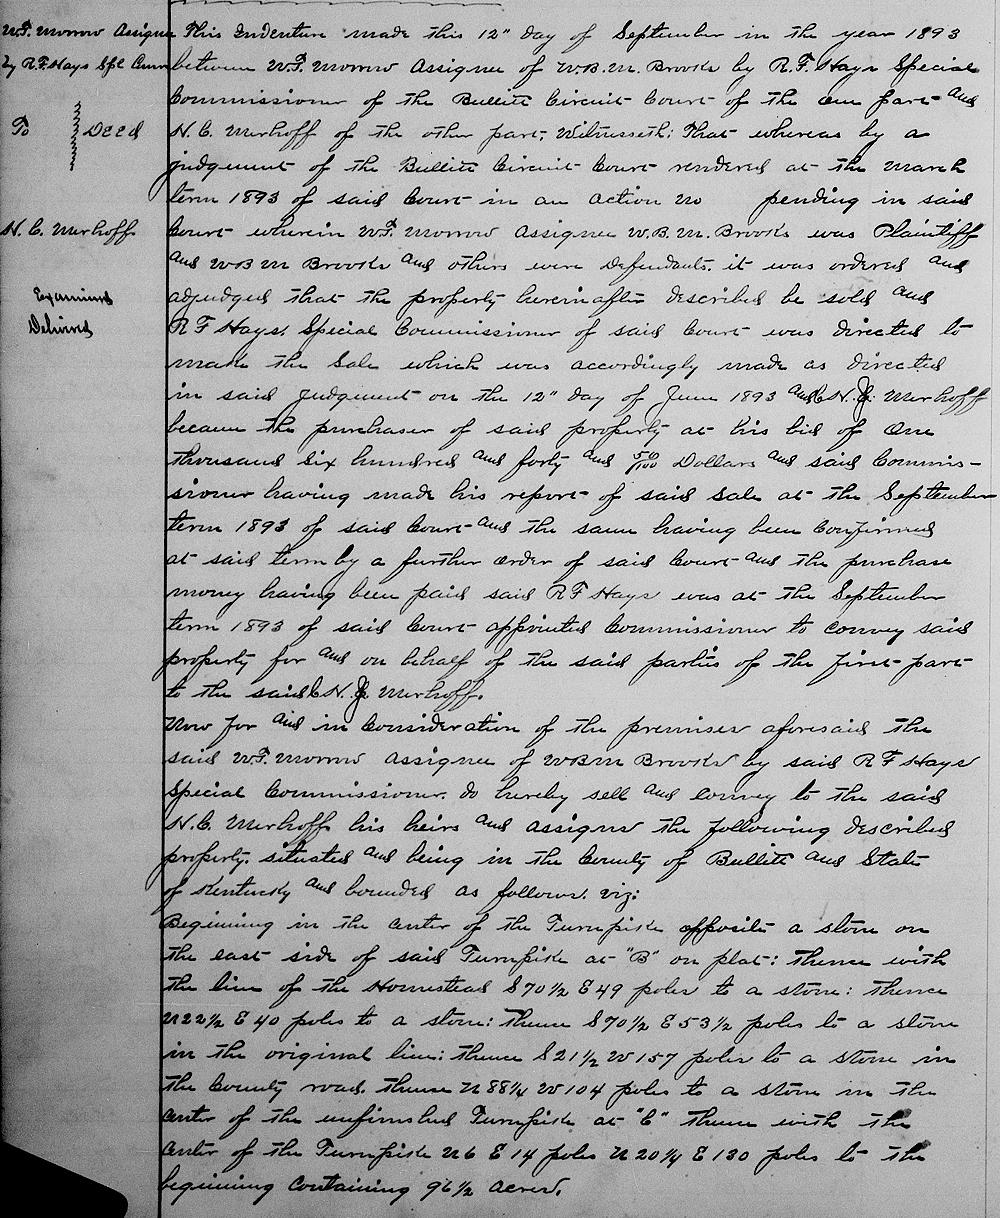 W.F. Morrow Assignee
by R.F. Hays Spl Comr
To } Deed
H. C. Merhoff
Examined
Delivered
This Indenture made this 12" day of September in the year 1893
between W.F. Morrow Assignee of W.B.M. Brooks by R.F. Hays Special
Commissioner of the Bullitt Circuit Court of the one part and
H. C. Merhoff of the other part, Witnesseth: That whereas by a
judgement of the Bullitt Circuit Court rendered at the March
term 1893 of said Court in an action no pending in said
Court wherein W.F. Morrow Assignee W.B.M. Brooks was Plaintiff
and W B M Brooks and others were Defendants. it was ordered and
adjudged that the property hereinafter described be sold and
R F Hays, Special Commissioner of said Court was directed to
make the Sale which was accordingly made as directed
in said Judgement on the 12" day of June 1893 and H. Merhoff
became the purchaser of said property at his bid of One
thousand Six hundred and forty and 50/100 Dollars and said Commis-
sioner having made his report of said Sale at the September
term 1893 of said Court and the same having been Confirmed
at said term by a further order of said Court and the purchase
money having been paid said R F Hays was at the September
term 1893 of said Court appointed Commissioner to convey said
property for and on behalf of the said parties of the first part
to the said H. Merhoff.
Now for and in Consideration of the premises aforesaid the
said W.F. Morrow Assignee of W B M Brooks by said R F Hays
Special Commissioner. do hereby sell and convey to the said
H. C. Merhoff his heirs and assigns the following described
property. situated and being in the County of Bullitt and State
of Kentucky and bounded as follows. viz:
Beginning in the center of the Turnpike opposite a stone on
the east side of said Turnpike at "B" on plat: thence with
the line of the Homestead S 70 1/2 E 49 poles to a stone: thence
N 22 1/2 E 40 poles to a stone: thence S 70 1/2 E 53 1/2 poles to a stone
in the original line: thence S 21 1/2 W 157 poles to a stone in
the County road. thence N 88 1/4 W 104 poles to a stone in the
center of the unfinished Turnpike at "C" thence with the
center of the Turnpike N 6 E 14 poles N 20 1/4 E 130 poles to the
beginning Containing 96 1/2 acres.